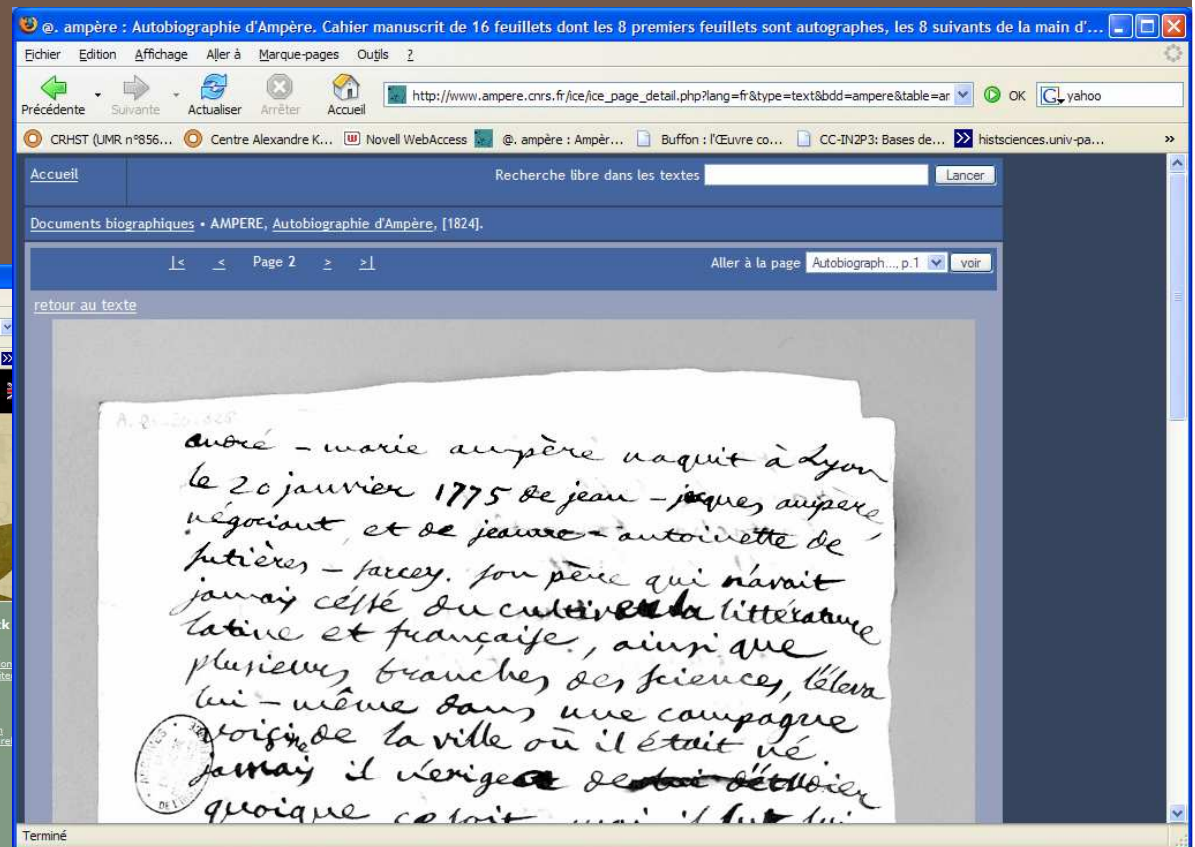 @. ampère : Autobiographie d'Ampère. Cahier manuscrit de 16 feuillets dont les 8 premiers feuillets sont autographes, les 8 suivants de la main d'...
Fichier Edition Affichage Aller à Marque-pages Outils ?
Précédente Suivante Actualiser Arrêter Accueil http://www.ampere.cnrs.fr/ice/ice_page_detail.php?lang=fr&type=text&bdd=ampere&table=ar OK G yahoo
CRHST (UMR n°856... Centre Alexandre K... Novell WebAccess @. ampère : Ampèr... Buffon : l'Œuvre co... CC-IN2P3: Bases de... histsciences.univ-pa... »
Accueil Recherche libre dans les textes Lancer
Documents biographiques • AMPERE, Autobiographie d'Ampère, [1824].
|< < Page 2 > >| Aller à la page Autobiograph..., p.1 voir
retour au texte
andré - marie ampère naquit à Lyon
le 20 janvier 1775 de jean - jacques ampère
négociant, et de jeanne - antoinette de
sutières - sarcey. son père qui n'avait
jamais céssé de cultiver la littérature
latine et française, ainsi que
plusieurs branches des sciences, l'éleva
lui - même dans une campagne
voisine de la ville où il était né.
jamais il n'exigea de
quoique ce soit, mais il sut lui
Terminé